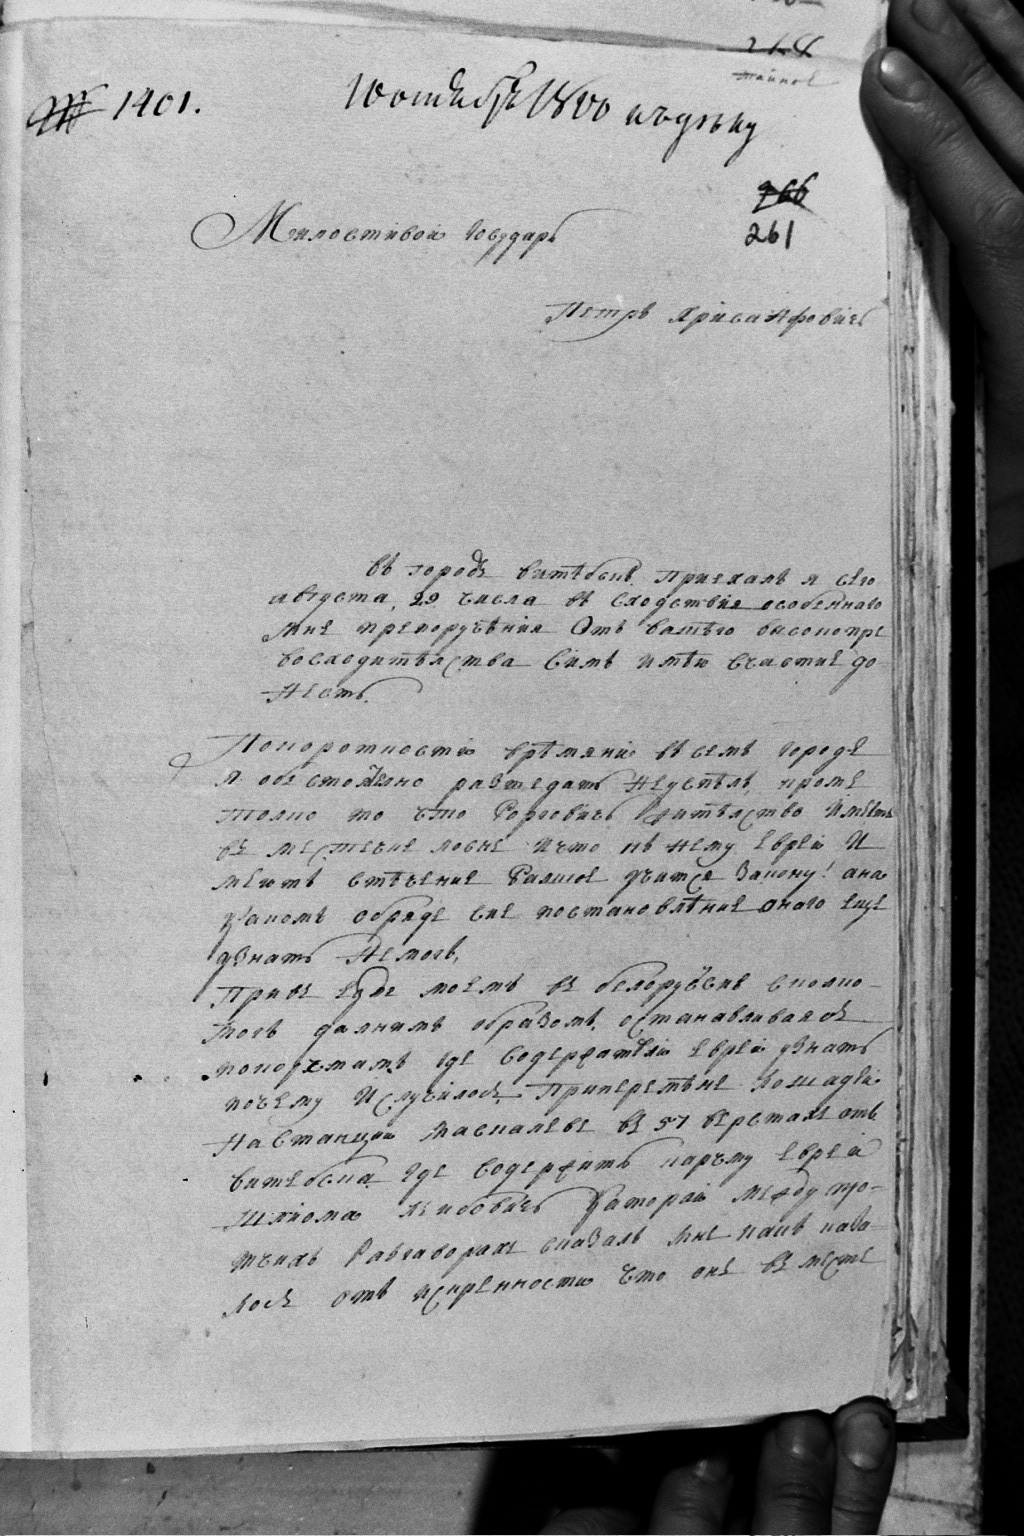 264
№ 1401.
10 октября 1800 къ дѣлу
266
261
Милостивой Государь
Петръ Хрисанфовичь
въ городъ витебскъ приехалъ я сего
августа 29 числа въ сходствие особеннаго
мне препоручения отъ вашего высокопре
восходительства симъ имѣю счастие до
несть.
Покоротности времяни въ семъ городе
я обстоятелно разведать неуспелъ, кроме
толко то что Борговичь жителство имеетъ
въ местечке лосне ичто къ нему евреи и
меютъ стечение учится закону! ана
какомъ обряде сие постановление онаго еще
узнать немогъ,
Привъ езде моемъ въ белорусские сколко
могъ далнимъ образомъ, останавливаясь
покорчмамъ где содержатели евреи узнать
почему ислучилось припеременѣ лошадей
настанции въ 57 верстахъ отъ
витебска где содержитъ карчму еврей
шліома лейбовичь каторай между про
тчихъ разгаворахъ сказалъ мне какъ каза
лось отъ искренности что онъ въ месте